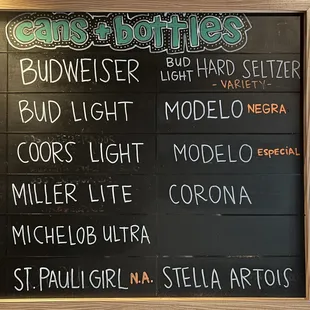 cans + bottles
BUDWEISER
BUD LIGHT
COORS LIGHT
MILLER LITE
MICHELOB ULTRA
ST. PAULI GIRL N.A.
BUD LIGHT HARD SELTZER
- VARIETY -
MODELO NEGRA
MODELO ESPECIAL
CORONA
STELLA ARTOIS